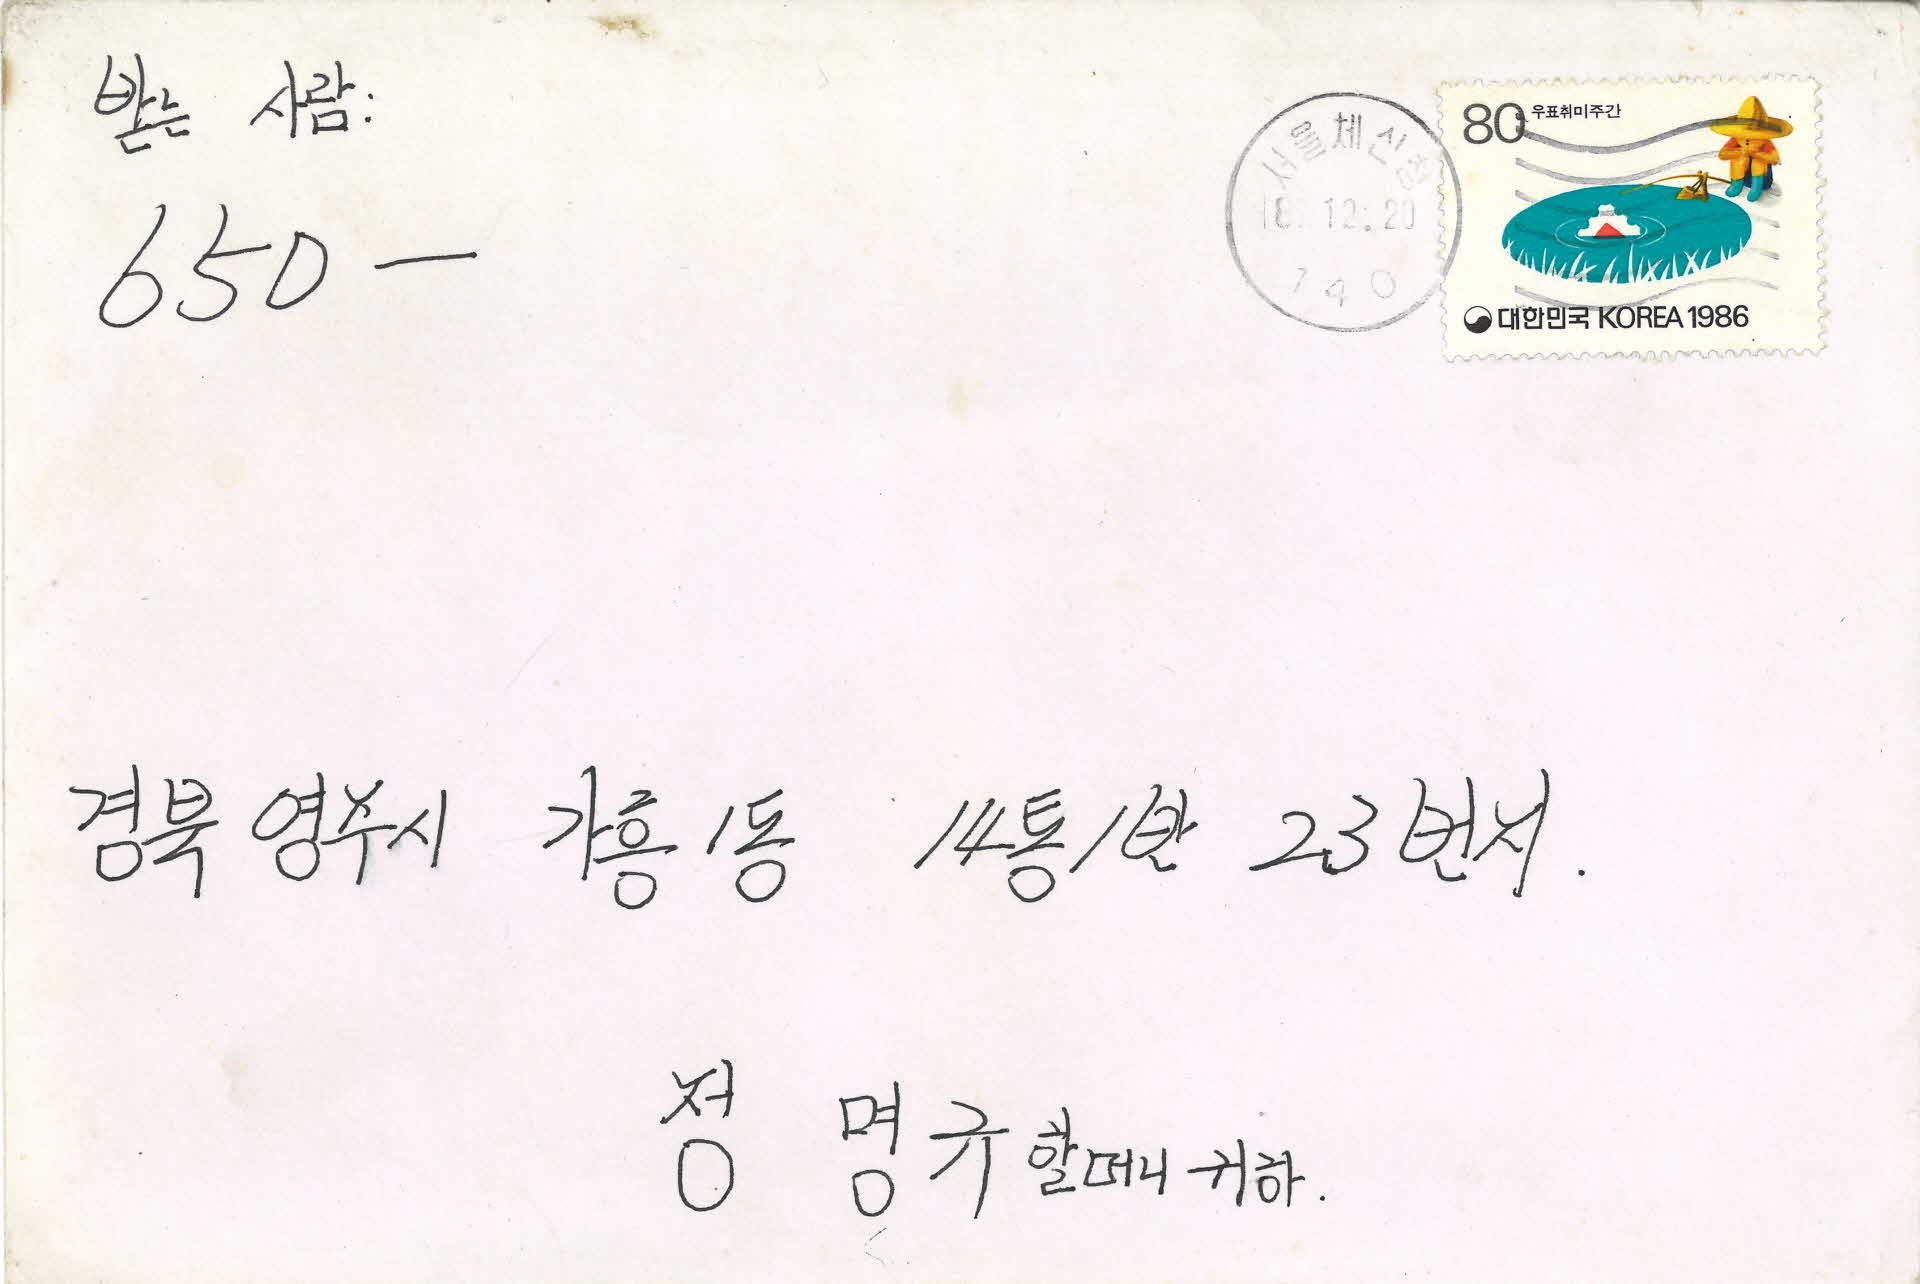 받는 사람:
650 —
서울체신청
12. 20
140
80 우표취미주간
대한민국 KOREA 1986
경북 영주시 가흥1동 14통 1반 23번지.
정 명규 할머니 귀하.